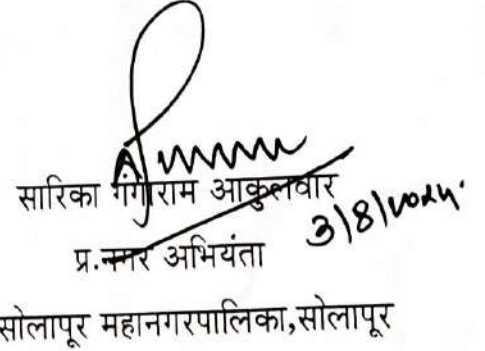 सारिका गंगाराम आकुलवार
प्र.नगर अभियंता
सोलापूर महानगरपालिका,सोलापूर